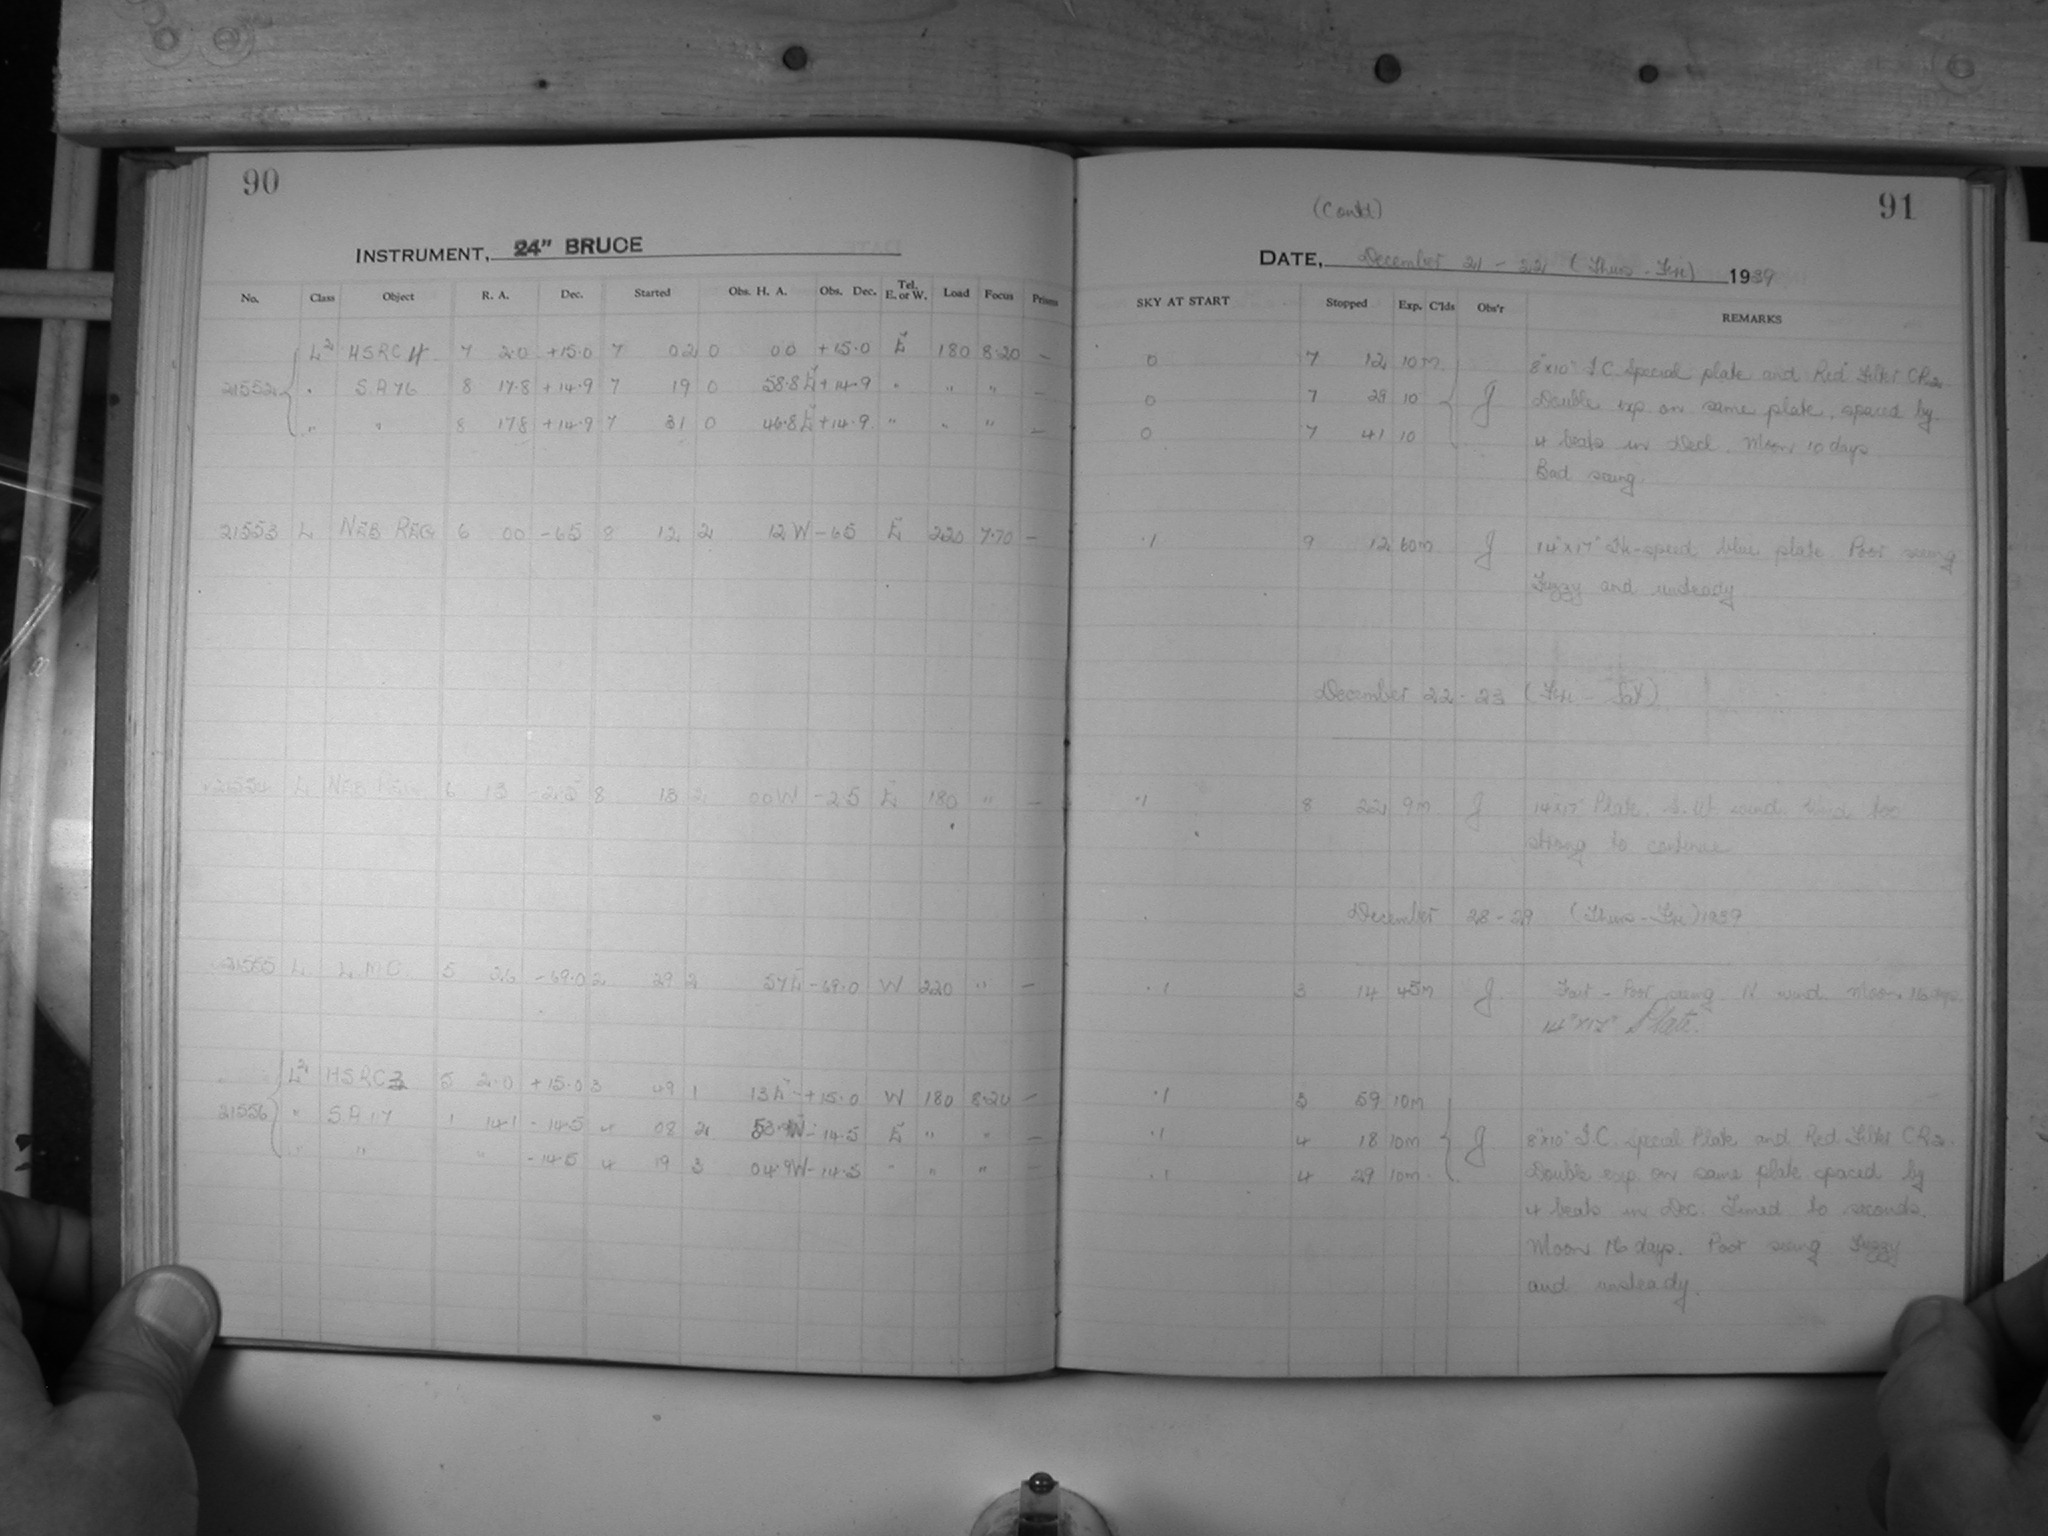 90
INSTRUMENT, 24" BRUCE
No. Class Object R. A. Dec. Started Obs. H. A. Obs. Dec. Tel. E. or W. Load Focus Prisms
L2 HSRC 4 7 2.0 +15.0 7 02 0 00 +15.0 E 180 8.20 —
21552 " SA76 8 17.8 +14.9 7 19 0 58.8E +14.9 " " " —
" " 8 178 +14.9 7 31 0 46.8E +14.9 " " " —
21553 L NEB REG 6 00 -65 8 12 2 12 W -65 E 220 7.70 —
21554 L NEB REG 6 13 -25 8 13 2 00W -25 E 180 " —
21555 L L.M.C. 5 26 -69.0 2 29 2 57E -69.0 W 220 " —
L2 HSRC3 5 2.0 +15.0 3 49 1 13E +15.0 W 180 8.20 —
21556 " SA 17 1 14.1 -14.5 4 08 2 W -14.5 E " " —
" " " -14.5 4 19 3 04.9W -14.5 " " " —
(Contd)
91
DATE, December 21 - 22 (Thurs - Fri) 1939
SKY AT START Stopped Exp. C'lds Obs'r REMARKS
0 7 12 10m 8"x10" I.C. Special plate and Red Filter CR2
0 7 29 10 J Double exp. on same plate, spaced by
0 7 41 10 4 beats in Decl. Moon 10 days
Bad seeing.
.1 9 12 60m J 14"x17" Hi-speed blue plate. Poor seeing
Fuzzy and unsteady
December 22 - 23 (Fri - Sat)
.1 8 22 9m J 14"x17" Plate. S.W. wind. Wind too
strong to continue
December 28 - 29 (Thurs - Fri) 1939
.1 3 14 45m J. Fair - Poor seeing N wind. Moon 16 days
14"x17" Plate.
.1 3 59 10m
.1 4 18 10m J 8"x10" I.C. Special Plate and Red Filter CR2.
.1 4 29 10m Double exp on same plate spaced by
4 beats in Dec. Timed to seconds.
Moon 16 days. Poor seeing Fuzzy
and unsteady.